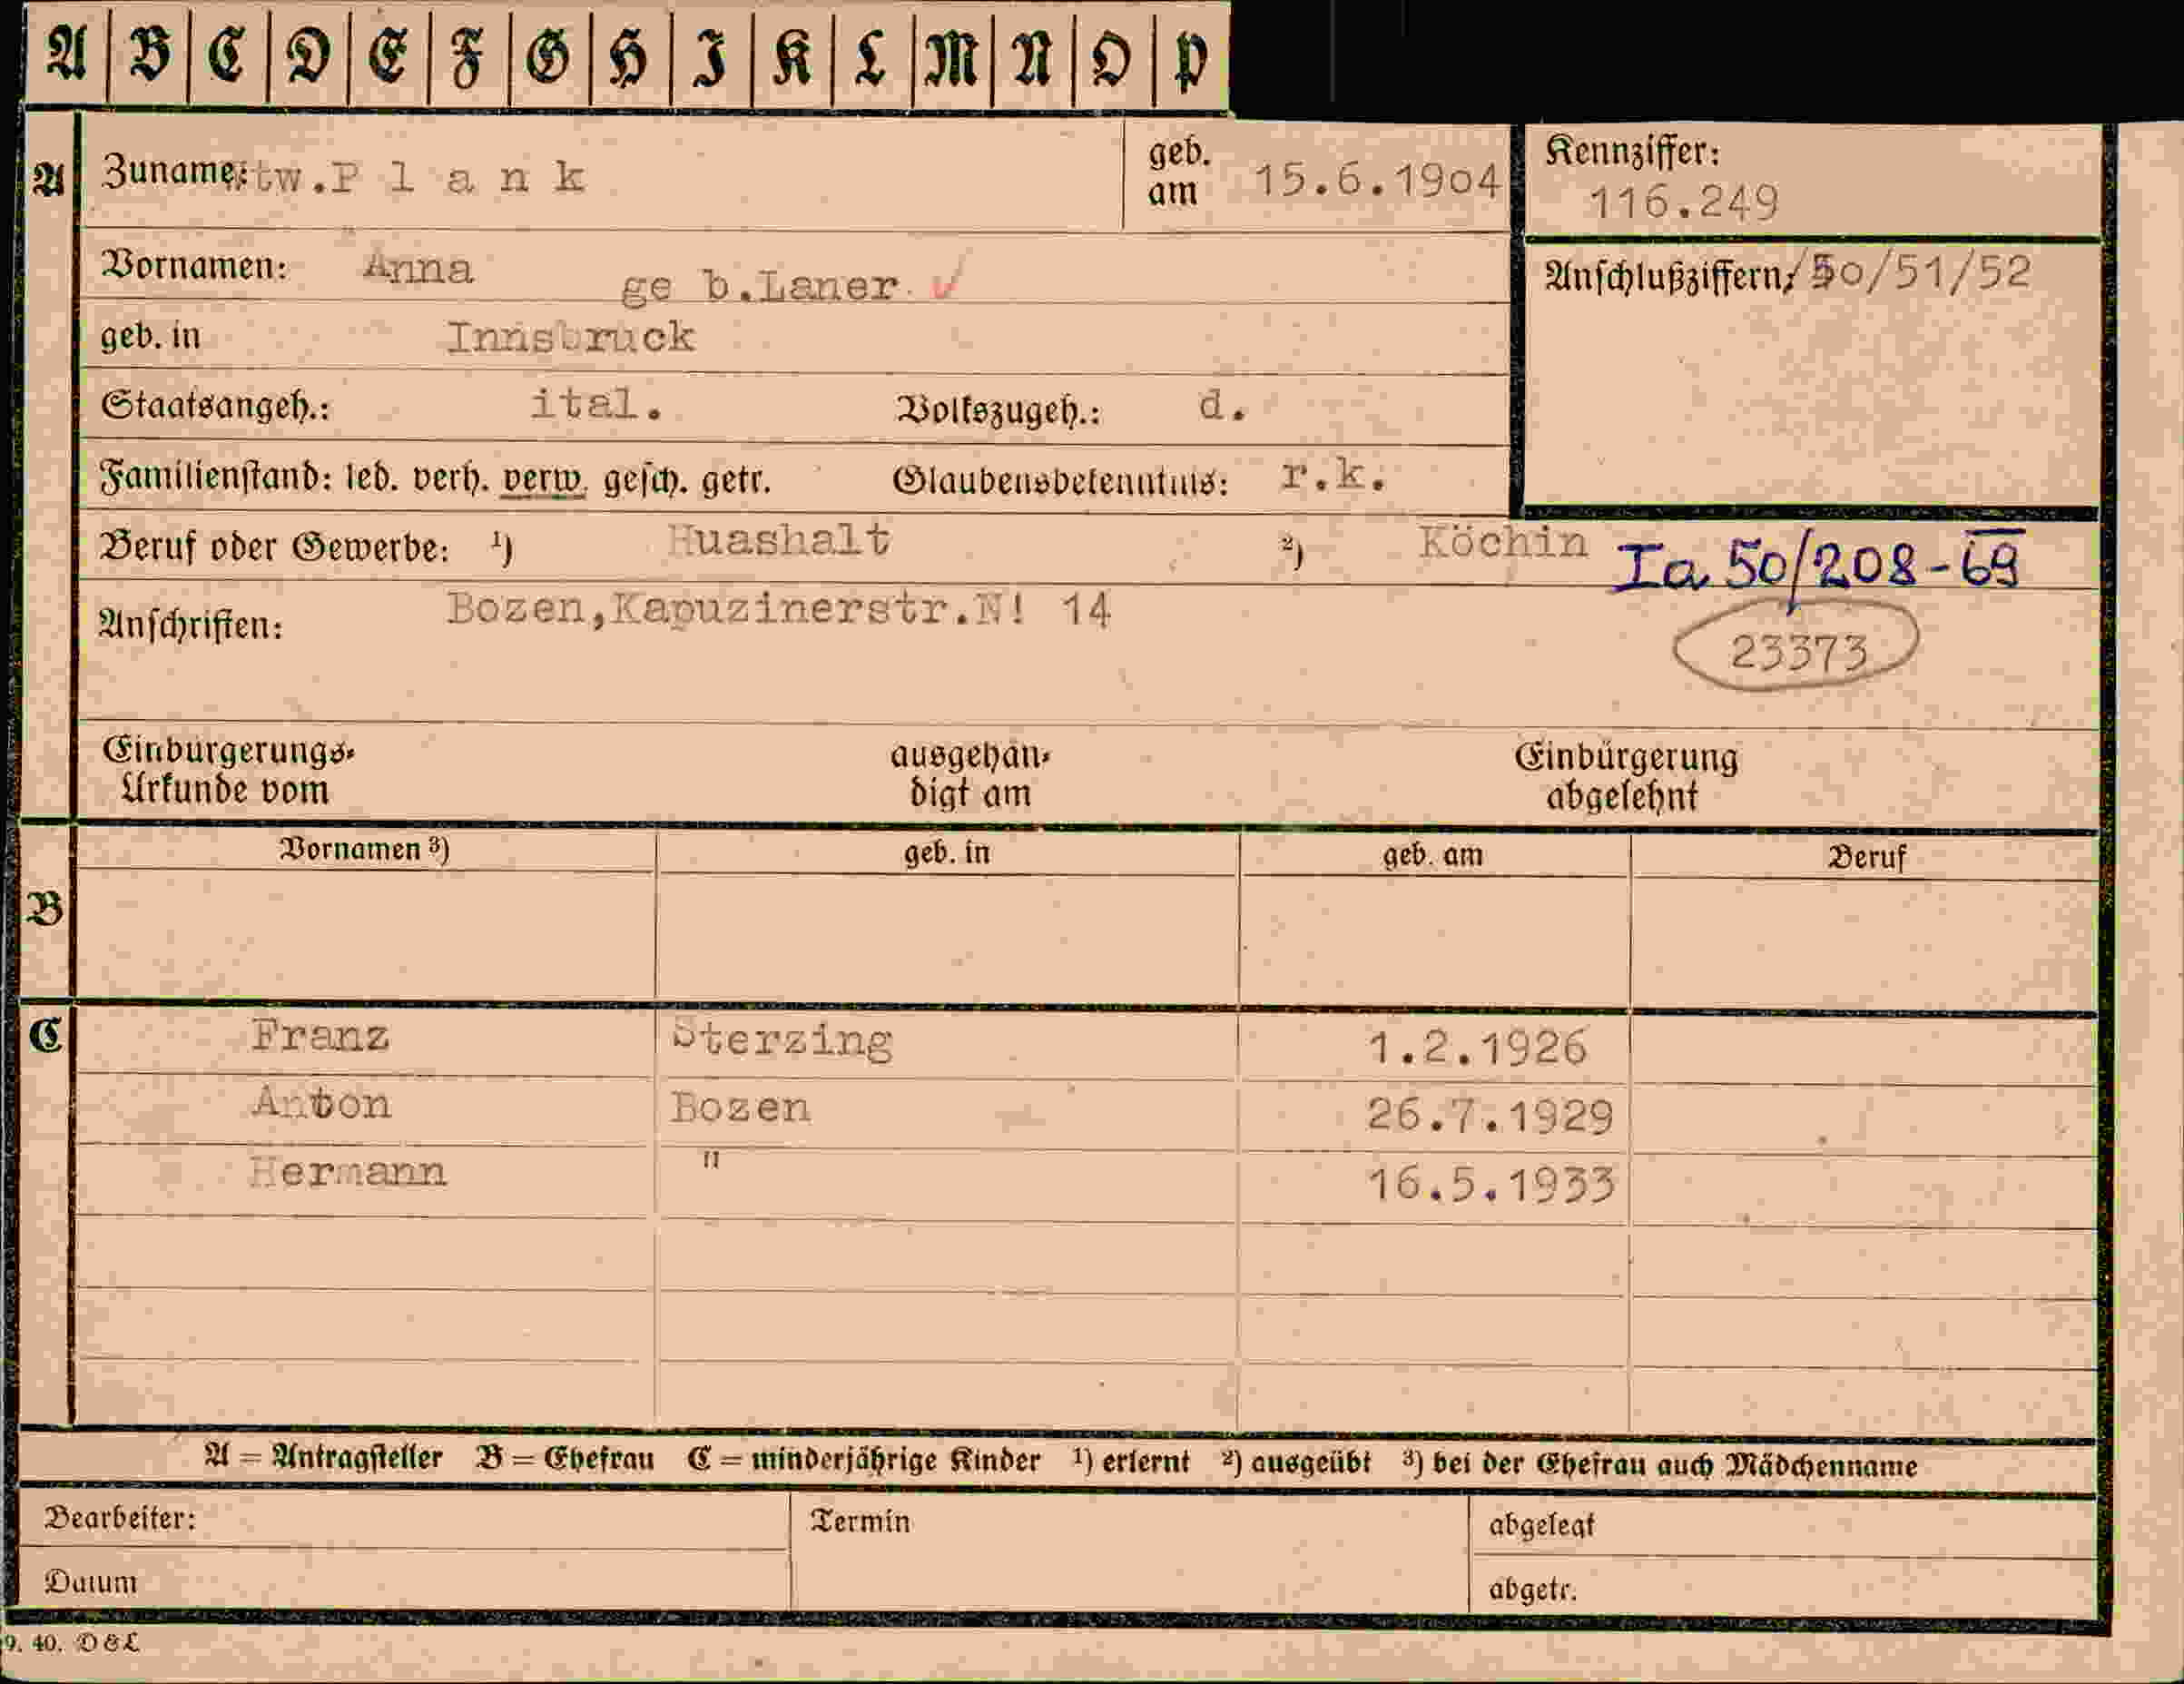 A B C D E F G H I K L M N O P
A Zuname: Wtw.P l a n k geb. am 15.6.1904 Kennziffer: 116.249
Vornamen: Anna ge b.Laner Anschlußziffern: /50/51/52
geb. in Innsbruck
Staatsangeh.: ital. Volkszugeh.: d.
Familienstand: led. verh. verw. gesch. getr. Glaubensbekenntnis: r.k.
Beruf oder Gewerbe: 1) Huashalt 2) Köchin Ia 50/208-69
Anschriften: Bozen,Kapuzinerstr.N! 14
23373
Einbürgerungs- ausgehän- Einbürgerung
Urkunde vom digt am abgelehnt
Vornamen 3) geb. in geb. am Beruf
B
C Franz Sterzing 1.2.1926
Anton Bozen 26.7.1929
Hermann " 16.5.1933
A = Antragsteller B = Ehefrau C = minderjährige Kinder 1) erlernt 2) ausgeübt 3) bei der Ehefrau auch Mädchenname
Bearbeiter: Termin abgelegt
Datum abgetr.
9. 40. D & L